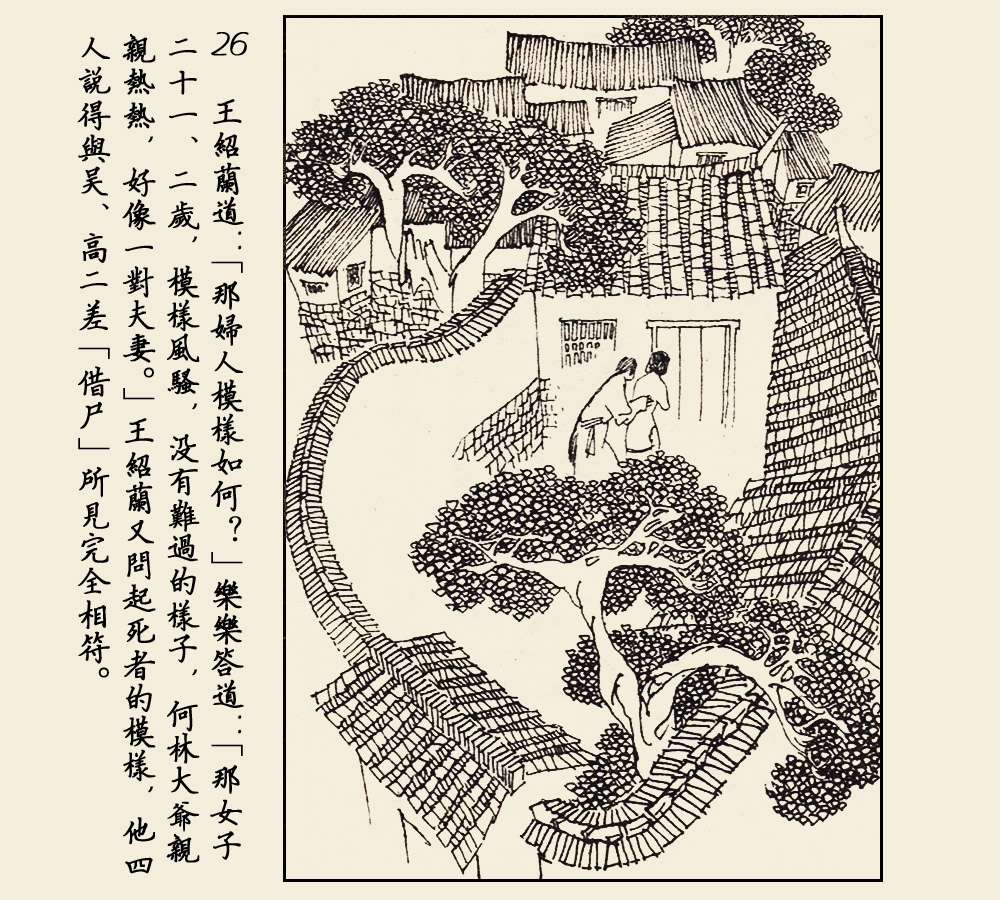 26
王紹蘭道：「那婦人模樣如何？」樂樂答道：「那女子
二十一、二歲，模樣風騷，没有難過的樣子，何林大爺親
親熱熱，好像一對夫妻。」王紹蘭又問起死者的模樣，他四
人説得與吴、高二差「借尸」所見完全相符。